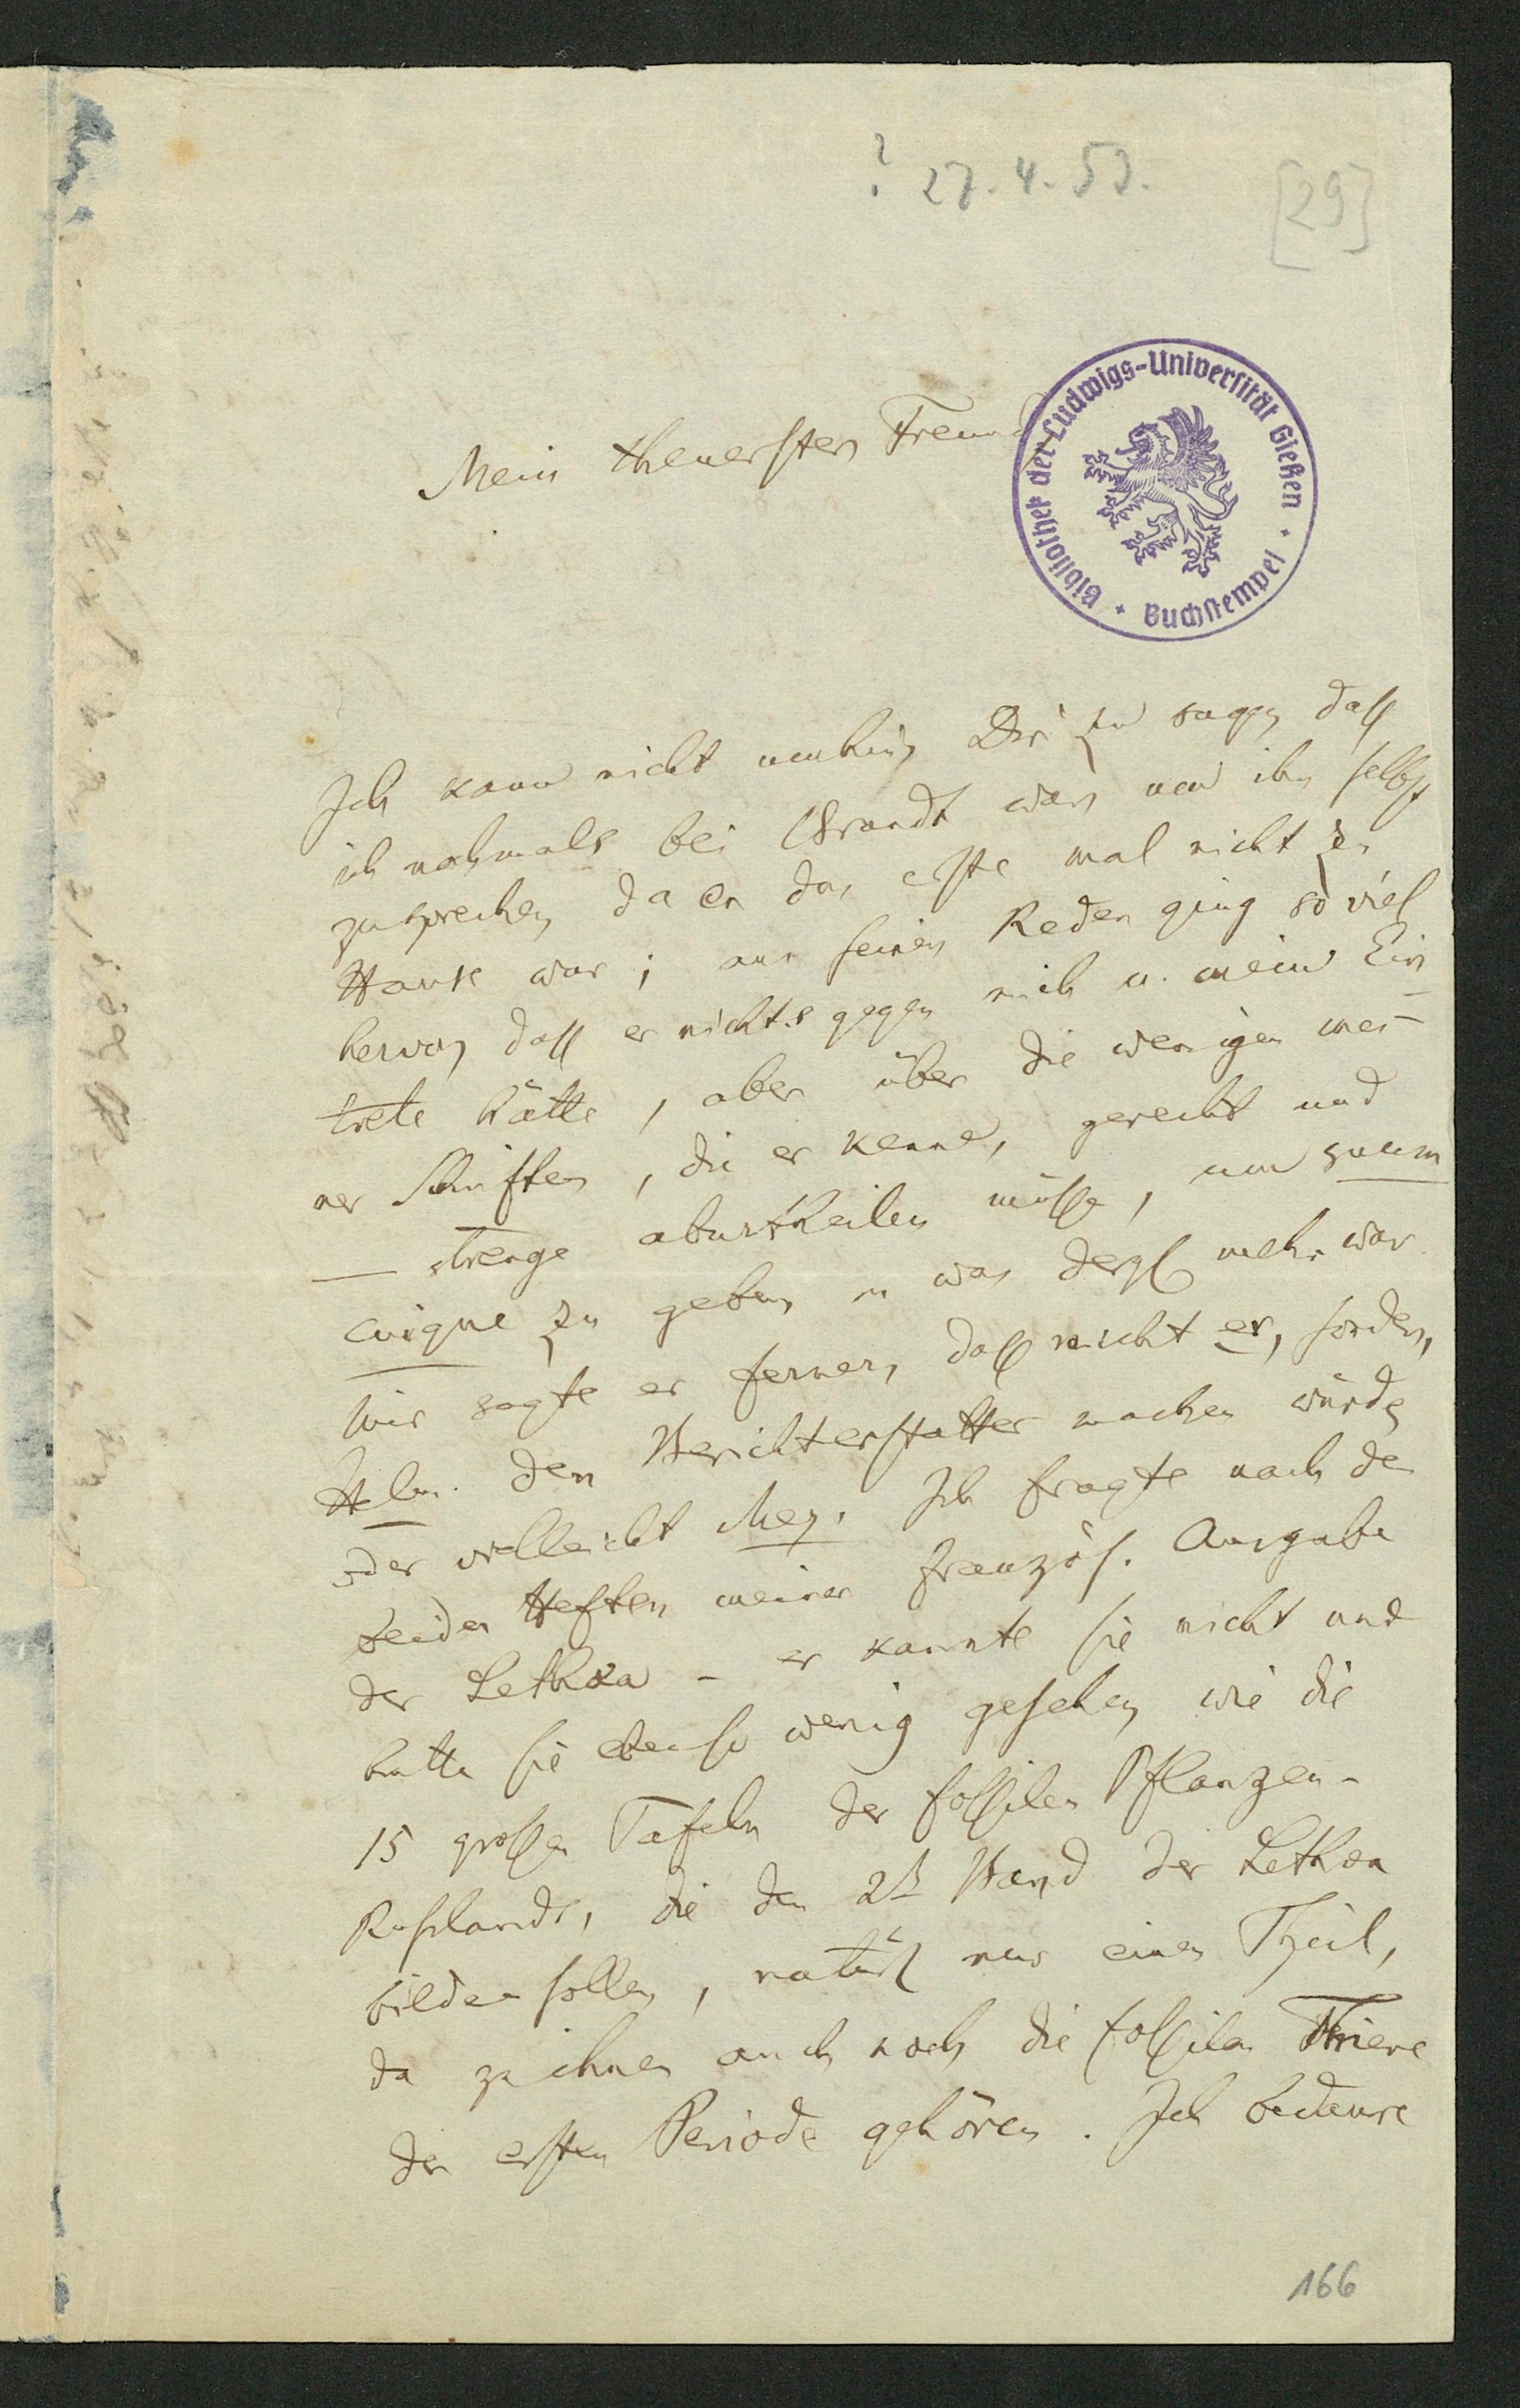 ? 27. 4. 53.
[29]
Bibliothek der Ludwigs-Universität Gießen
Buchstempel
Mein theuerster Freund
Ich kann nicht umhin, Dir zu sagen daß
ich nochmals bei Brandt war, um ihn selbst
zu sprechen, da er das erste mal nicht zu
Hause war; aus seinen Reden ging so viel
hervor, daß er nichts gegen mich u. mein Ein
trete hätte, aber über die wenigen mei-
ner Schriften, die er kenne, gerecht und
— strenge aburtheilen müsse, um suum
cuique zu geben u was dergl mehr war.
Mir sagte er ferner, daß nicht er, sondern,
Helm. den Berichterstatter machen würde,
oder vielleicht Mey. Ich fragte nach den
beiden Heften meiner französ. Ausgabe
der Lethaea - er kannte sie nicht und
hatte sie ebenso wenig gesehen, wie die
15 großen Tafeln der fossilen Pflanzen-
Rußlands, die den 2t Band der Lethaea
bilden sollen, natürl nur einen Theil,
da zu ihnen auch noch die fossilen Thiere
der ersten Periode gehören. Ich bedaure
166